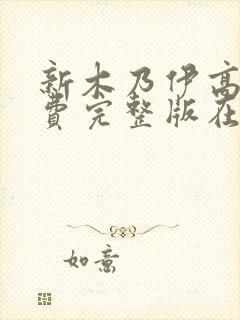 新木乃伊高
费完整版在
如意